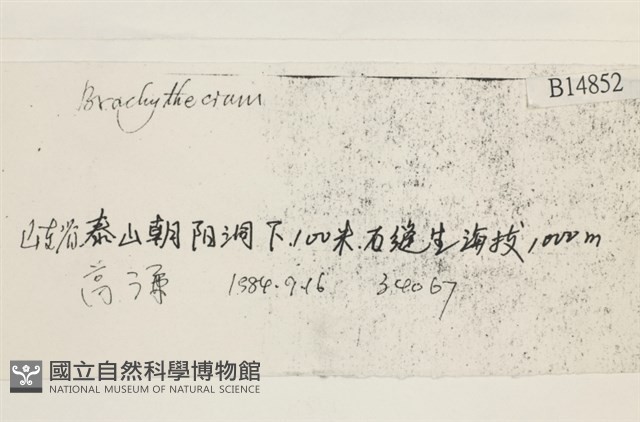 Brachythecium
B14852
山东省泰山朝阳洞下.100米.石缝生海拔1,000m
高谦 1984.9.16 34067
國立自然科學博物館
NATIONAL MUSEUM OF NATURAL SCIENCE